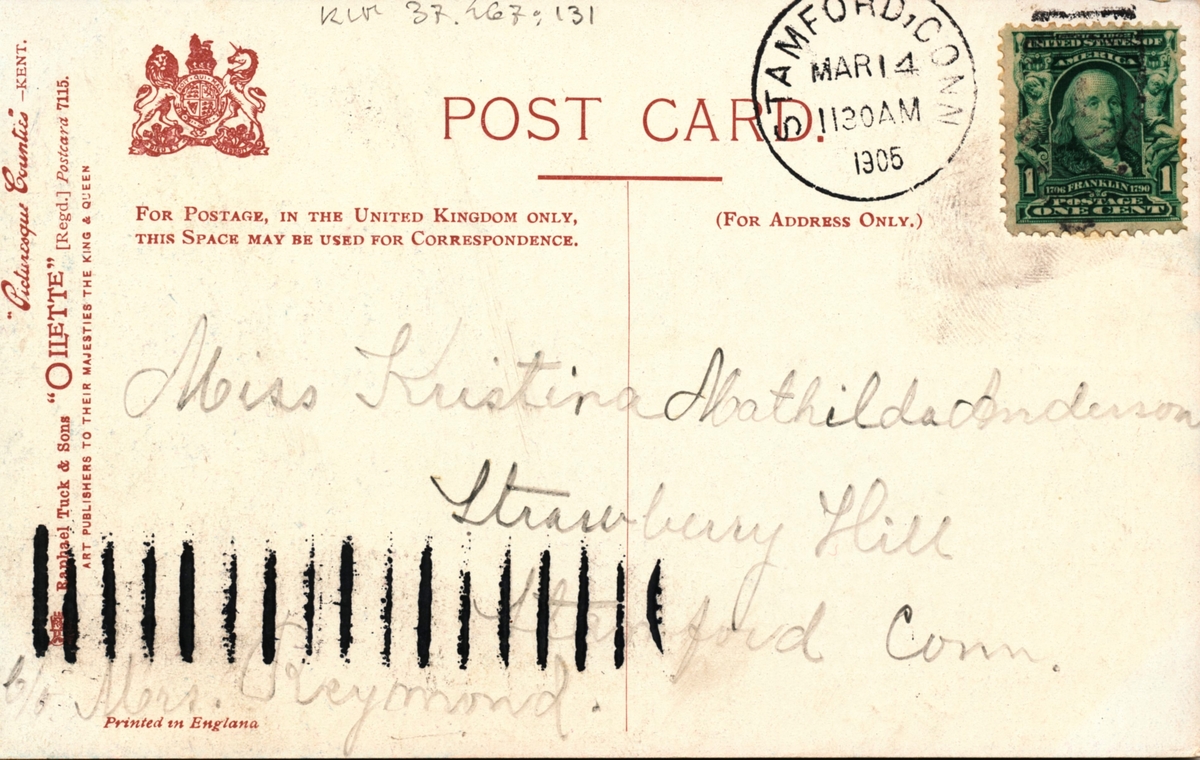 37.267:131
"Picturesque Counties" —KENT.
Raphael Tuck & Sons "OILETTE" [Regd.] Postcard 7115.
ART PUBLISHERS TO THEIR MAJESTIES THE KING & QUEEN
POST CARD.
STAMFORD, CONN
MAR 14
1130AM
1905
UNITED STATES OF
AMERICA
1 1
1706 FRANKLIN 1790
POSTAGE
ONE CENT
FOR POSTAGE, IN THE UNITED KINGDOM ONLY,
THIS SPACE MAY BE USED FOR CORRESPONDENCE.
(FOR ADDRESS ONLY.)
Miss Kristina Mathilda Anderson
Strawberry Hill
Stamford Conn.
c/o Mrs. Reymond.
Printed in England